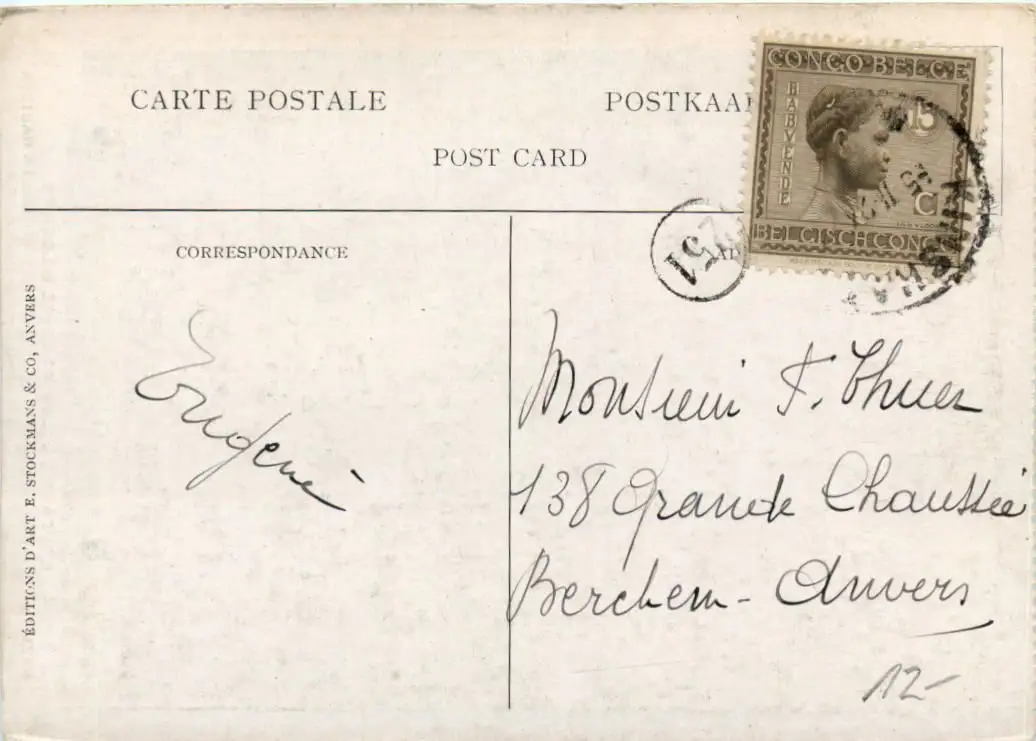 CARTE POSTALE
POSTKAA
POST CARD
CONGO BELGE
BABVENDE
15
C
BELGISCH CONGO
251
CORRESPONDANCE
ÉDITIONS D'ART E. STOCKMANS & CO, ANVERS
Eugénie
Monsieur F. Thues
138 Grande Chaussée
Berchem - Anvers
12-